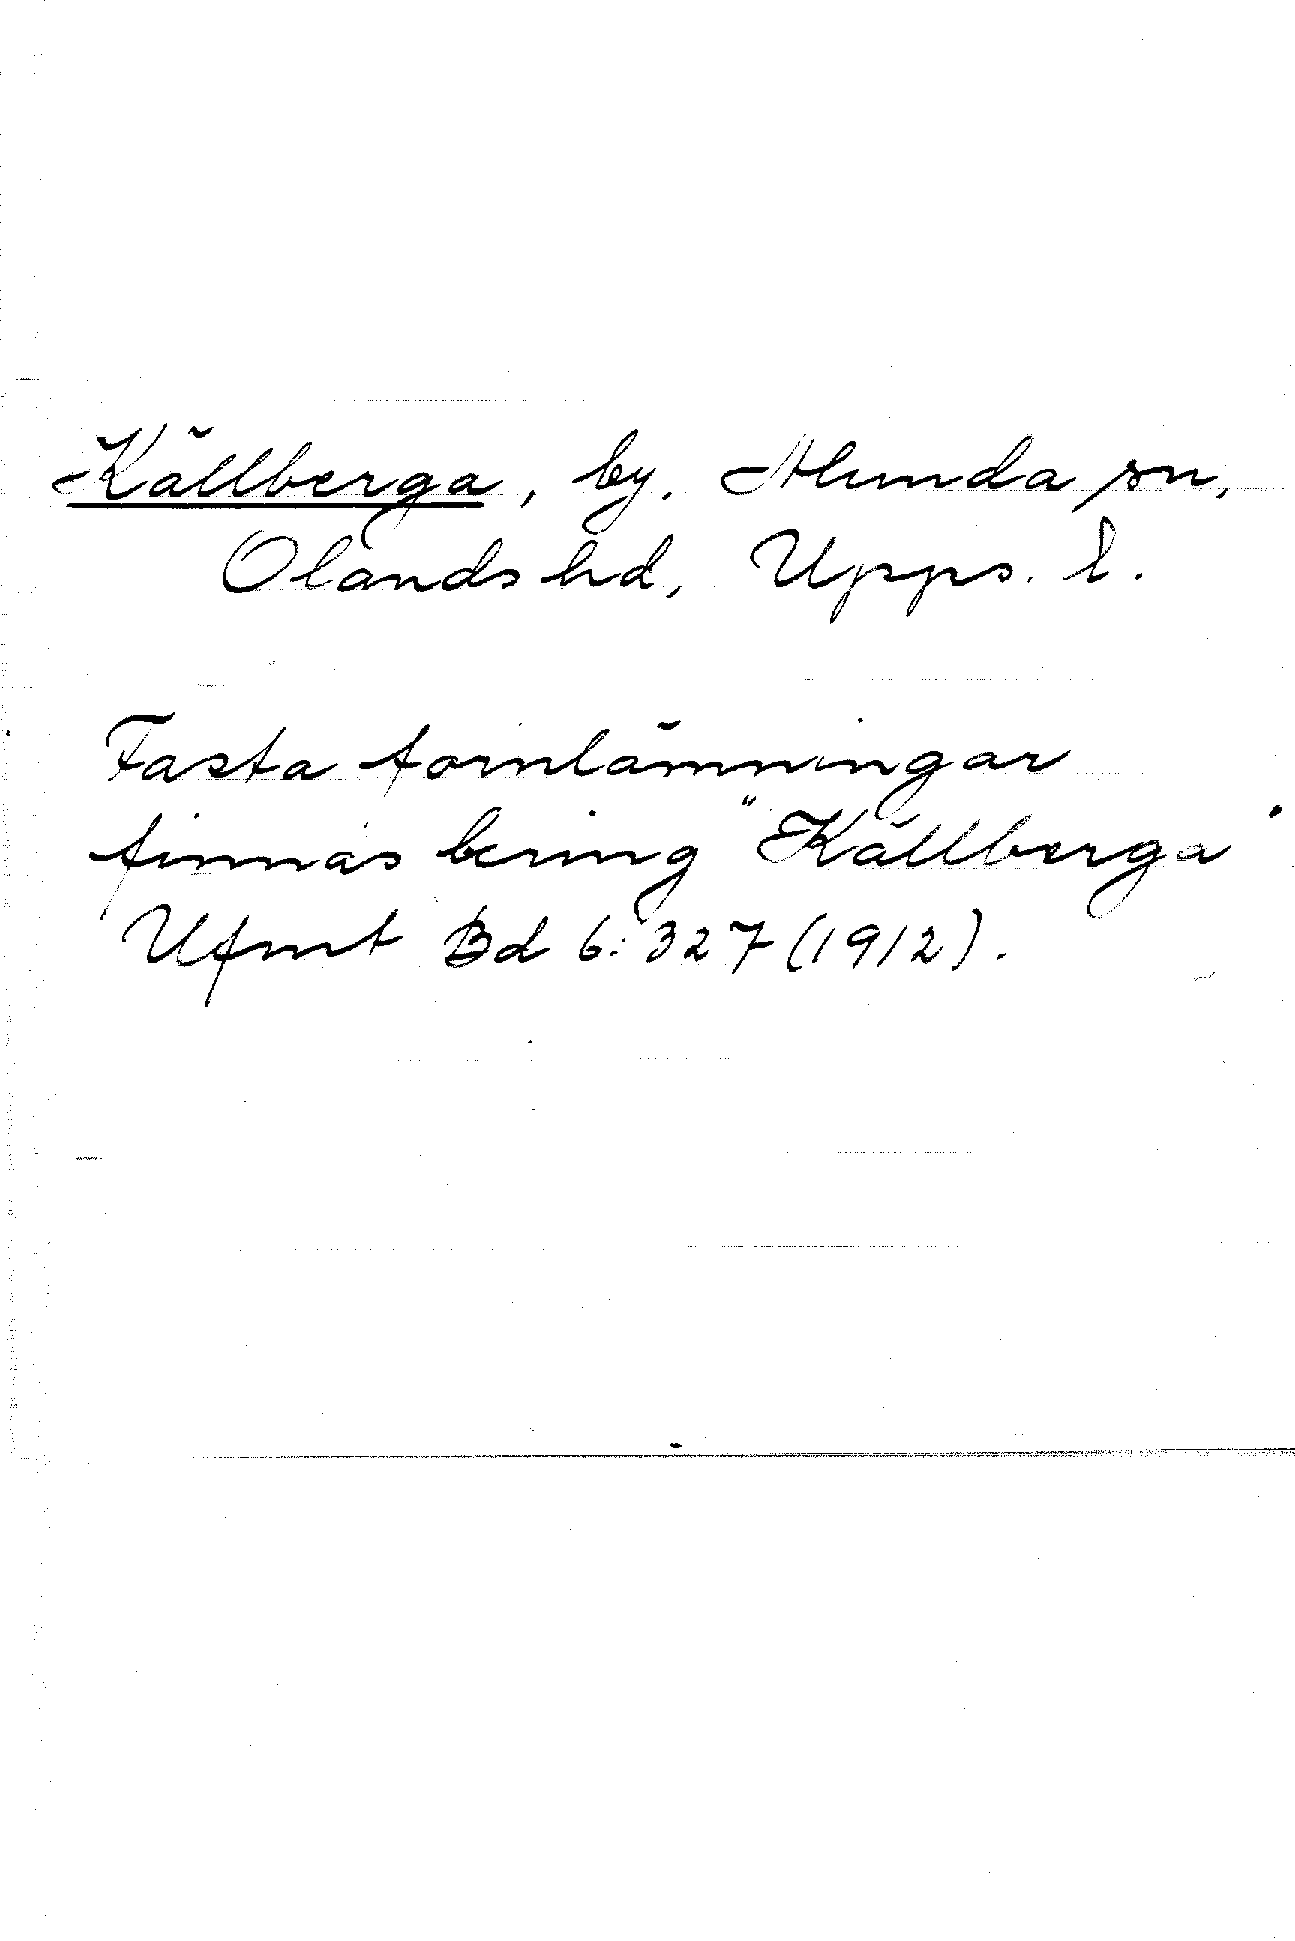 Källberga, by, Alunda sn,
Olands hd, Upps. l.
Fasta fornlämningar
finnas kring "Källberga"
Ufmt Bd 6: 327 (1912).